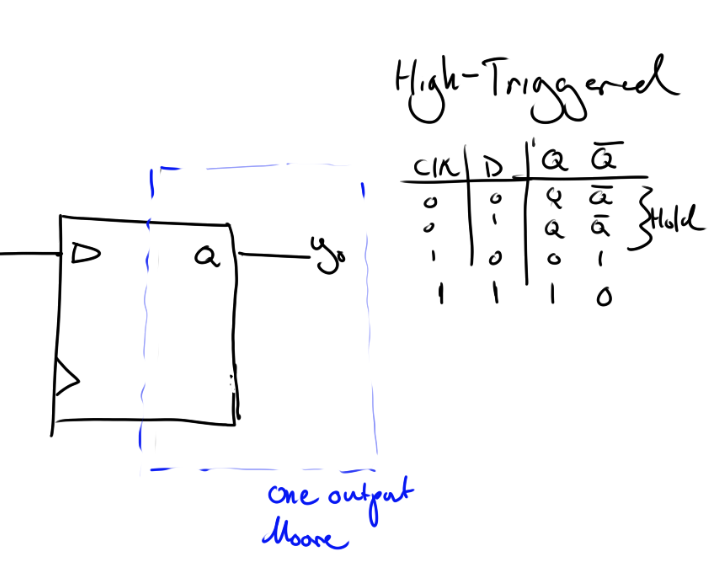 High-Triggered
Clk D Q Q̅
0 0 Q Q̅
0 1 Q Q̅
Hold
1 0 0 1
1 1 1 0
D Q y₀
one output
Moore